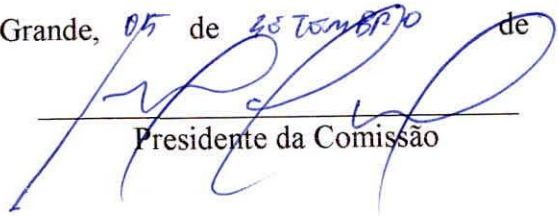 Grande, 05 de SETEMBRO de
Presidente da Comissão